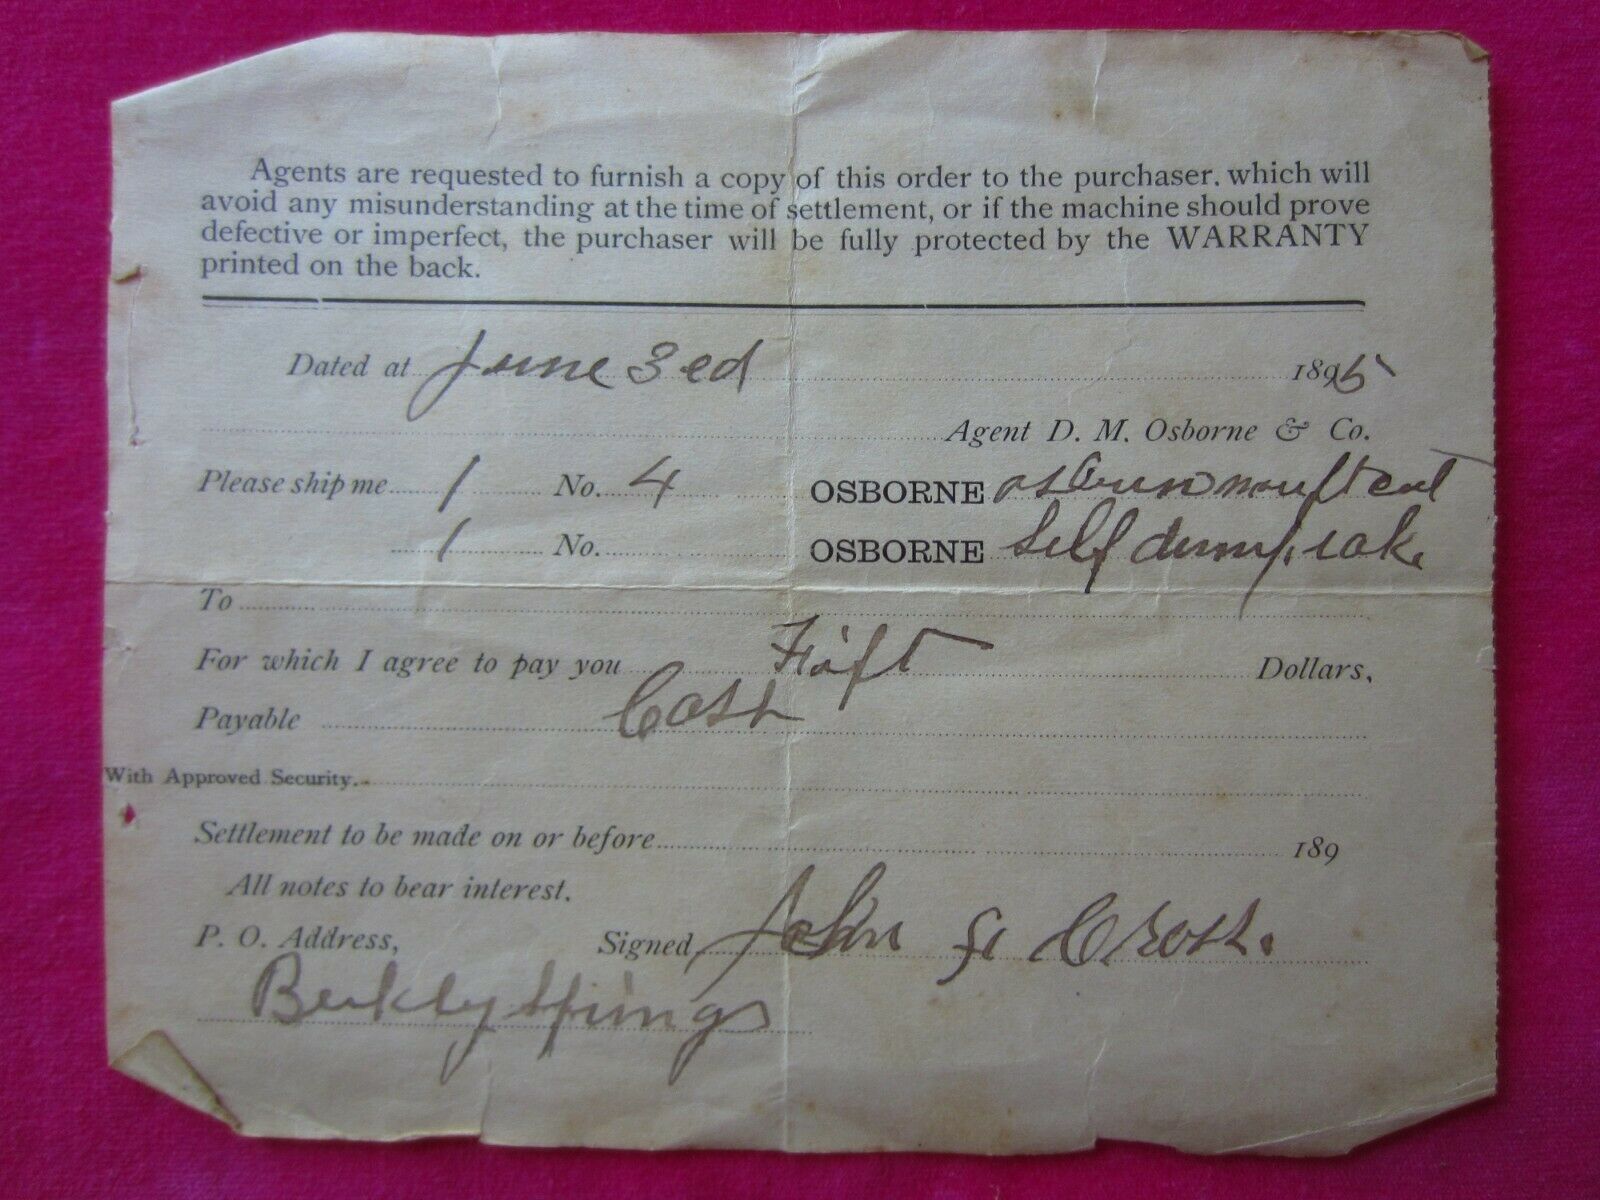 Agents are requested to furnish a copy of this order to the purchaser. which will
avoid any misunderstanding at the time of settlement, or if the machine should prove
defective or imperfect, the purchaser will be fully protected by the WARRANTY
printed on the back.
Dated at June 3 ed 1895
Agent D. M. Osborne & Co.
Please ship me 1 No. 4 OSBORNE
1 No. OSBORNE Self dump rake
To
For which I agree to pay you Dollars,
Payable Cash
With Approved Security.
Settlement to be made on or before 189
All notes to bear interest.
P. O. Address, Signed John
Berkly Springs